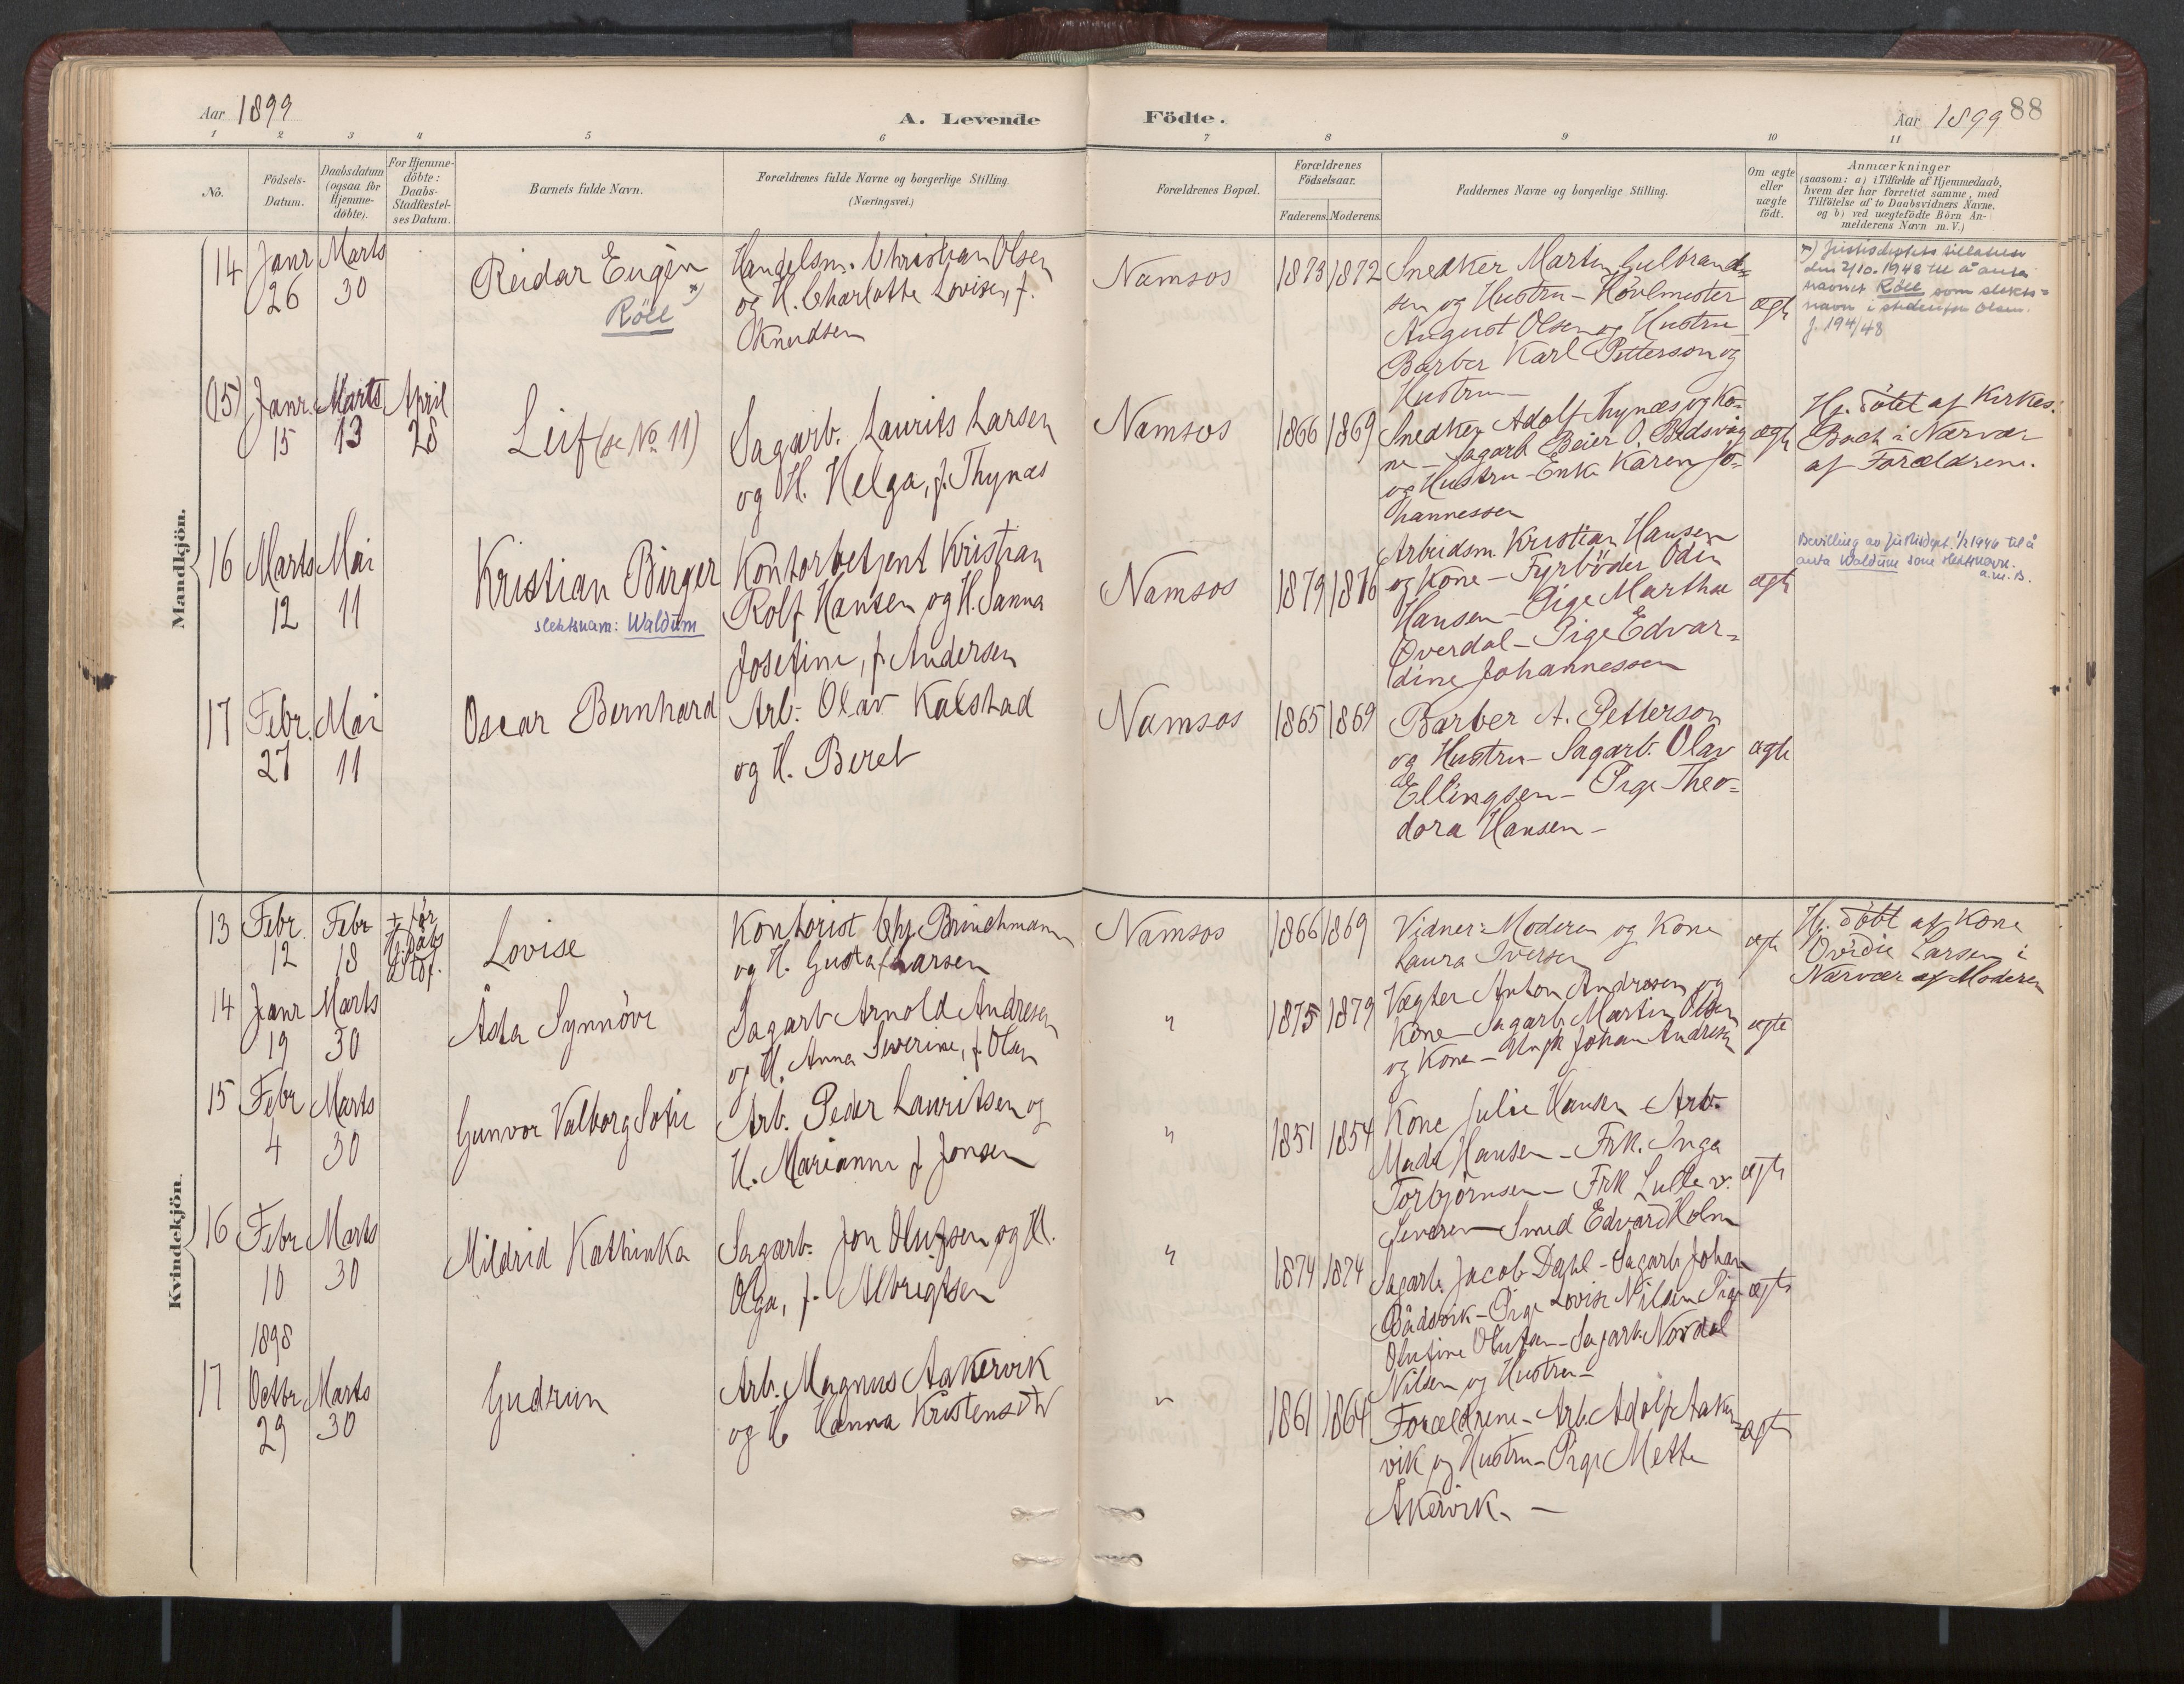 Aar 1899
A. Levende
Födte.
Aar 1899
88
1 2 3 4 5 6 7 8 9 10 11
No.
Födsels-
Datum.
Daabsdatum
(ogsaa for
Hjemme-
döbte).
For Hjemme-
döbte:
Daabs-
Stadfæstel-
ses Datum.
Barnets fulde Navn.
Forældrenes fulde Navne og borgerlige Stilling.
(Næringsvei.)
Forældrenes Bopæl.
Forældrenes
Födselsaar.
Faderens. Moderens.
Faddernes Navne og borgerlige Stilling.
Om ægte
eller
uægte
født.
Anmærkninger
(saasom: a) i Tilfælde af Hjemmedaab,
hvem der har forrettet samme, med
Tilföielse af to Daabsvidners Navne,
og b) ved uægtefödte Börn An-
melderens Navn m. V.)
Mandkjön.
14
Janr
26
Marts
30
Reidar Eugén
*)
Röll
Handelsm. Christian Olsen
og H. Charlotte Lovise, f.
Knudsen
Namsos
1873 1872
Snedker Martin Gulbrand-
sen og Hustru - Hövlmester
August Olsen og Hustru
Barber Karl Petterson og
Hustru -
ægte
*) Justisdeptets tillatelse
den 2/10. 1948 til å anta
navnet Röll som slekts-
navn i stedetfor Olsen.
J. 194/48
(15)
Janr.
15
Marts
13
April
28
Leif (se No 11)
Sagarb. Laurits Larsen
og H. Helga, f. Thynæs
Namsos
1866 1869
Snedker Adolf Thynæs og Ko-
ne - Sagarb Beier O. Bedsvåg
og Hustru - Enke Karen Jo-
hannessen
ægte
Hj. döbt af Kirkes.
Bach i Nærvær
af Forældrene.
16
Marts
12
Mai
11
Kristian Birger
slektsnavn: Waldum
Kontorbetjent Kristian
Rolf Hansen og H. Sanna
Josefine, f. Andersen
Namsos
1879 1876
Arbeidsm. Kristian Hansen
og Kone - Fyrböder Odin
Hansen - Pige Marthae
Overdal - Pige Edvar-
dine Johannessen
ægte
Bevilling av Justisdept. 1/2 1946 til å
anta Waldum som slektsnavn.
17
Febr.
27
Mai
11
Oscar Bernhard
Arb. Olav Kalstad
og H. Beret
Namsos
1865 1869
Barber A. Petterson
og Hustru - Sagarb. Olav
Ellingsen - Pige Theo-
dora Hansen -
ægte
Kvindekjön.
13
Febr
12
Febr
18
+ för
Hj. dåbs
Stdf.
Lovise
Kontorist Chr. Brinchmann
og H. Gusta f. Larsen
Namsos
1866 1869
Vidner: Moderen og Kone
Laura Iversen
ægte
Hj. döbt af Kone
Ovidie Larsen i
Nærvær af Moderen
14
Janr
19
Marts
30
Åsta Synnöve
Sagarb Arnold Andresen
og H. Anna Severine, f. Olsen
"
1875 1879
Vægter Anton Andresen og
Kone - Sagarb. Martin Olsen
og Kone - Ungk Johan Andresen
ægte
15
Febr
4
Marts
30
Gunvor Valborg Sofie
Arb. Peder Lauritsen og
H. Marianne f. Jonsen
"
1851 1854
Kone Julie Hansen - Arb.
Mads Hansen - Frk. Inga
Torbjörnsen - Frk Lulle v.
Severen - Smed Edvard Holm
ægte
16
Febr
10
Marts
30
Mildrid Kathinka
Sagarb. Jon Olufsen og H.
Olga, f. Albrigtsen
"
1874 1874
Sagarb. Jacob Dahl - Sagarb. Johan
Bådsvik - Pige Lovise Nilsen Pige
Olufine Olufsen - Sagarb. Nordal
Nilsen og Hustru -
ægte
17
1898
Octbr
29
Marts
30
Gudrun
Arb. Magnus Aakervik
og H. Hanna Kristensdtr
"
1861 1864
Forældrene - Arb. Adolf Aaker-
vik og Hustru - Pige Mette
Åkervik. -
ægte